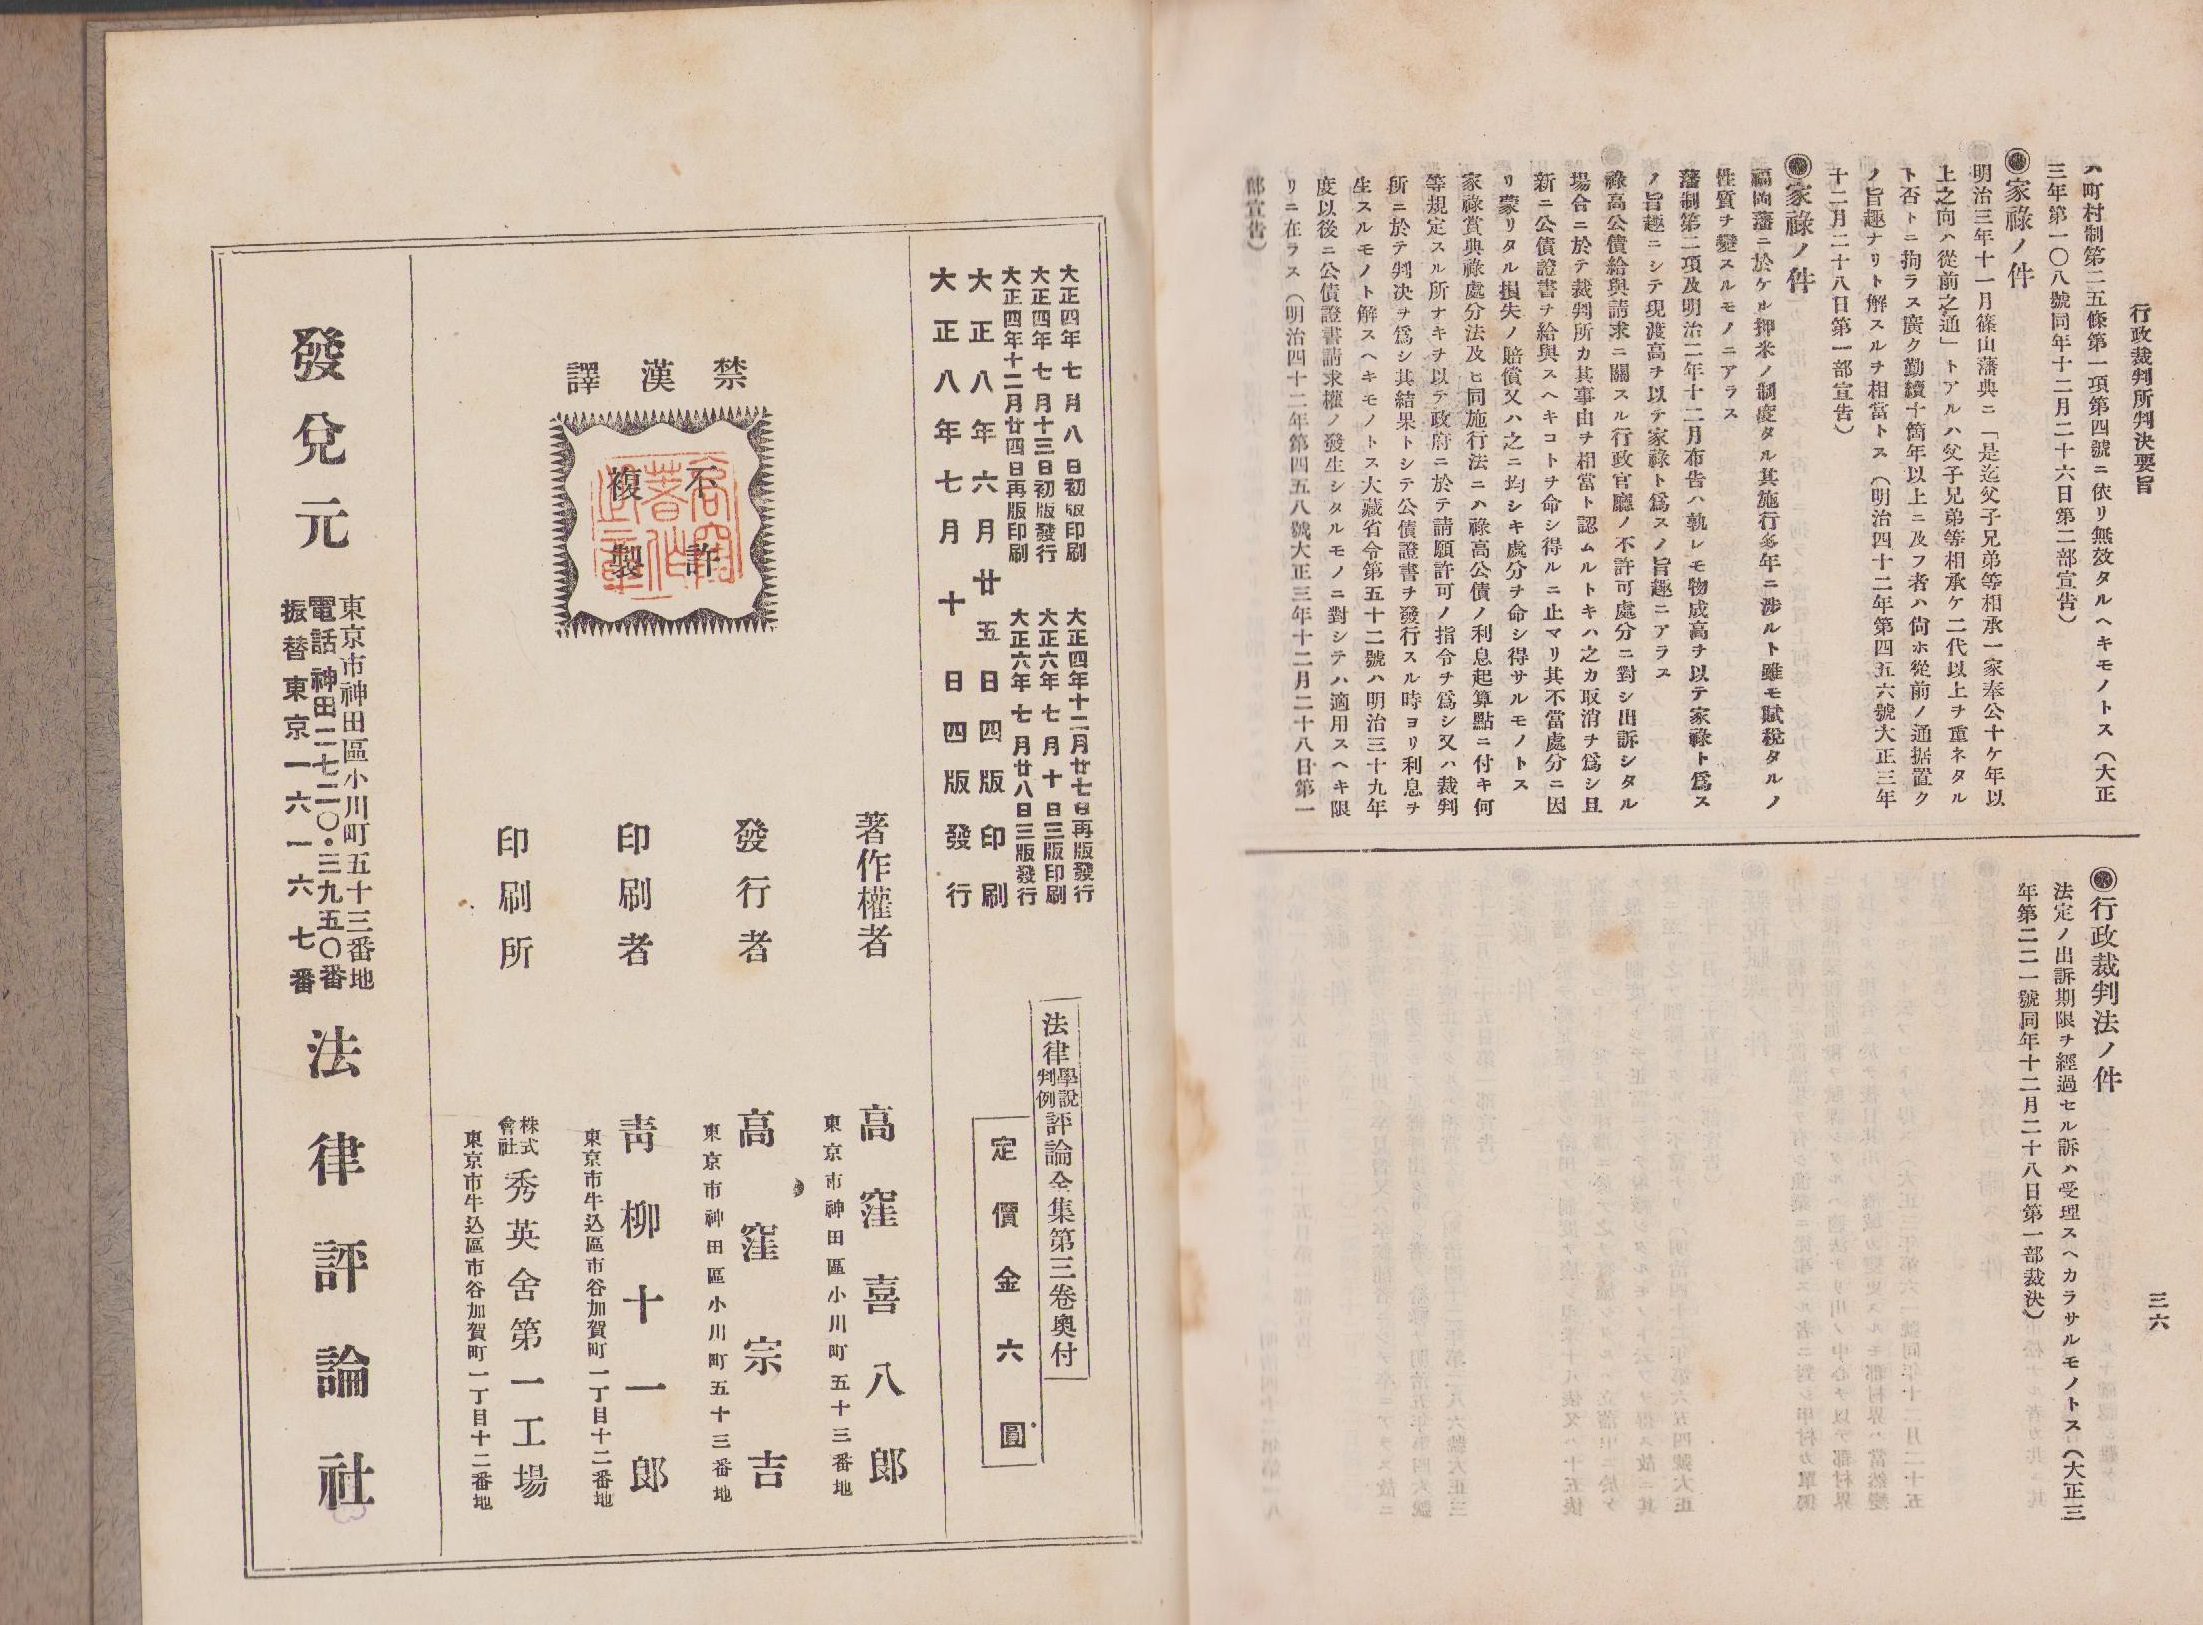 行政裁判所判決要旨
三六
ハ町村制第二五條第一項第四號ニ依リ無效タルヘキモノトス（大正
三年第一〇八號同年十二月二十六日第二部宣告）
◉家祿ノ件
明治三年十一月篠山藩典ニ「是迄父子兄弟等相承一家奉公十ケ年以
上之向ハ從前之通」トアルハ父子兄弟等相承ケ二代以上ヲ重ネタル
ト否トニ拘ラス廣ク勤續十箇年以上ニ及フ者ハ尙ホ從前ノ通据置ク
ノ旨趣ナリト解スルヲ相當トス（明治四十二年第四五六號大正三年
十二月二十八日第一部宣告）
◉家祿ノ件
福岡藩ニ於ケル押米ノ制度タル其施行多年ニ涉ルト雖モ賦稅タルノ
性質ヲ變スルモノニアラス
藩制第二項及明治二年十二月布告ハ孰レモ物成高ヲ以テ家祿ト爲ス
ノ旨趣ニシテ現渡高ヲ以テ家祿ト爲スノ旨趣ニアラス
祿高公債給與請求ニ關スル行政官廳ノ不許可處分ニ對シ出訴シタル
場合ニ於テ裁判所カ其事由ヲ相當ト認ムルトキハ之カ取消ヲ爲シ且
新ニ公債證書ヲ給與スヘキコトヲ命シ得ルニ止マリ其不當處分ニ因
リ蒙リタル損失ノ賠償又ハ之ニ均シキ處分ヲ命シ得サルモノトス
家祿賞典祿處分法及ヒ同施行法ニハ祿高公債ノ利息起算點ニ付キ何
等規定スル所ナキヲ以テ政府ニ於テ請願許可ノ指令ヲ爲シ又ハ裁判
所ニ於テ判決ヲ爲シ其結果トシテ公債證書ヲ發行スル時ヨリ利息ヲ
生スルモノト解スヘキモノトス大藏省令第五十二號ハ明治三十九年
度以後ニ公債證書請求權ノ發生シタルモノニ對シテハ適用スヘキ限
リニ在ラス（明治四十二年第四五八號大正三年十二月二十八日第一
部宣告）
◉行政裁判法ノ件
法定ノ出訴期限ヲ經過セル訴ハ受理スヘカラサルモノトス（大正三
年第二二一號同年十二月二十八日第一部裁決）
大正四年七月八日初版印刷
大正四年七月十三日初版發行
大正四年十二月廿四日再版印刷
大正四年十二月廿七日再版發行
大正六年七月十日三版印刷
大正六年七月廿八日三版發行
大正八年六月廿五日四版印刷
大正八年七月十日四版發行
法律學說判例評論全集第三卷奧付
定價金六圓
禁漢譯
不許複製
著作權者
東京市神田區小川町五十三番地
高窪喜八郎
發行者
東京市神田區小川町五十三番地
高窪宗吉
印刷者
東京市牛込區市谷加賀町一丁目十二番地
靑柳十一郎
印刷所
東京市牛込區市谷加賀町一丁目十二番地
株式會社秀英舍第一工場
發兌元
東京市神田區小川町五十三番地
電話神田二七二〇・三九五〇番
振替東京一六一六七番
法律評論社